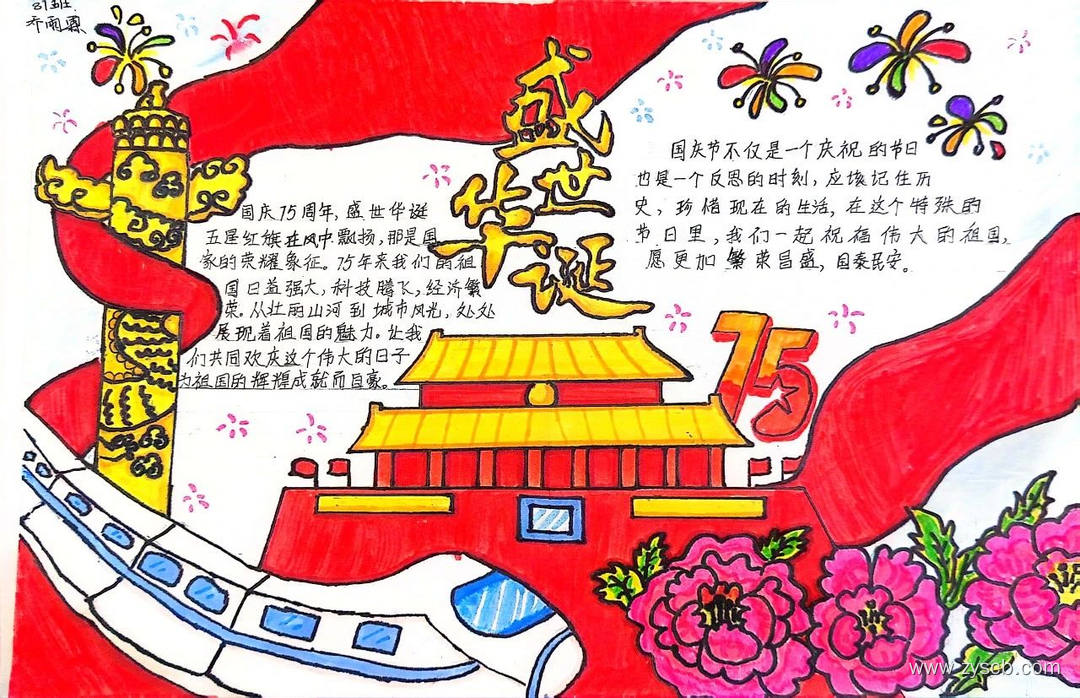 乔雨源
盛世华诞
国庆75周年,盛世华诞
五星红旗在风中飘扬,那是国
家的荣耀象征。75年来我们的祖
国日益强大,科技腾飞,经济繁
荣。从壮丽山河到城市风光,处处
展现着祖国的魅力。让我
们共同欢庆这个伟大的日子
为祖国的辉煌成就而自豪。
国庆节不仅是一个庆祝的节日
也是一个反思的时刻,应该记住历
史,珍惜现在的生活,在这个特殊的
节日里,我们一起祝福伟大的祖国,
愿更加繁荣昌盛,国泰民安。
75
www.zyscb.com